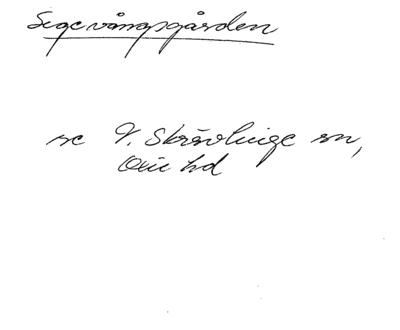 Segevångsgården
se V. Skrävlinge sn,
Oxie hd